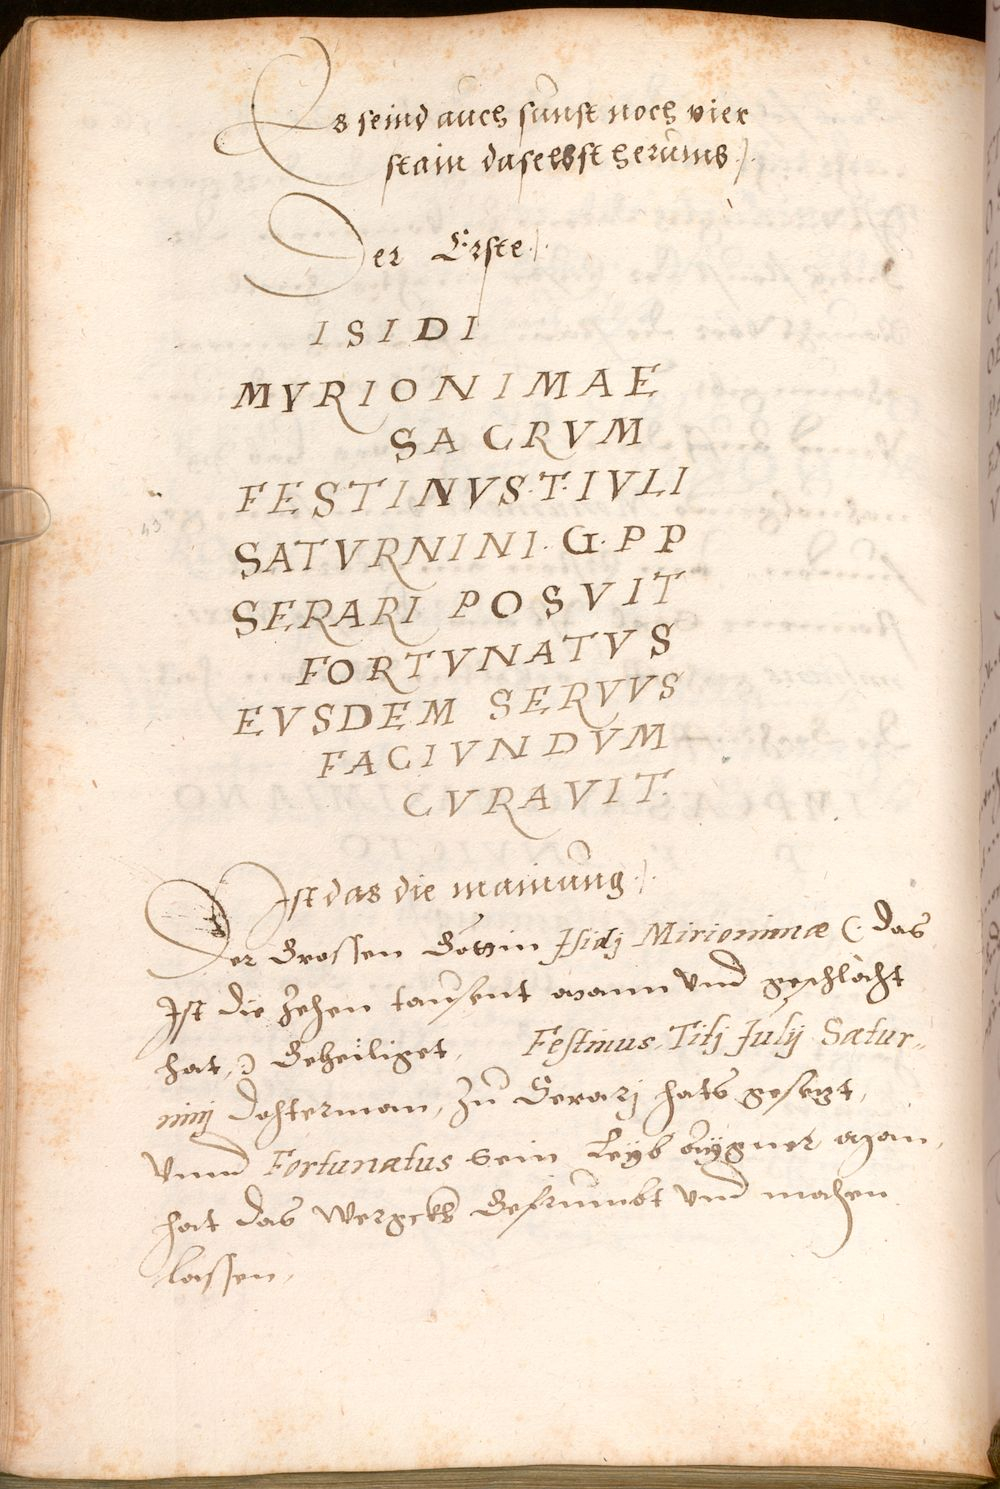 Es seind auch sunst noch vier
stain daselbst herumb.
Der Erste.
ISIDI
MVRIONIMAE
SACRVM
FESTINVS·T·IVLI
SATVRNINI·G·P P
SERARI POSVIT
FORTVNATVS
EVSDEM SERVVS
FACIVNDVM
CVRAVIT.
Ist das die mainung.
Der Grossen Göttin Isidj Mirionimæ (. das
Ist die Zehen tausent mann vnd geschlächt
hat,.) Geheiliget, Festinus, Titj Julij Satur-
ninj Zu Serarj hats gesetzt,
Vnnd Fortunatus Sein Leyb aÿgner man,
hat das Werckh Gefrumbt vnd machen
lassen,